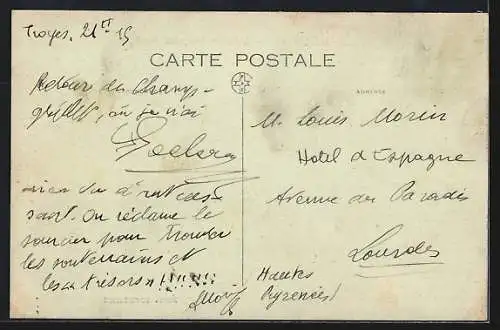 Troyes, 21
CARTE POSTALE
ADRESSE
Retour de Champ-
où je n'ai
rien vu d'intéres-
sant. On réclame le
sourcier pour trouver
les souterrains et
les "trésors" !!!!!!
M. Louis Morin
Hotel d'Espagne
Avenue du Paradis
Lourdes
Hautes
Pyrenées)